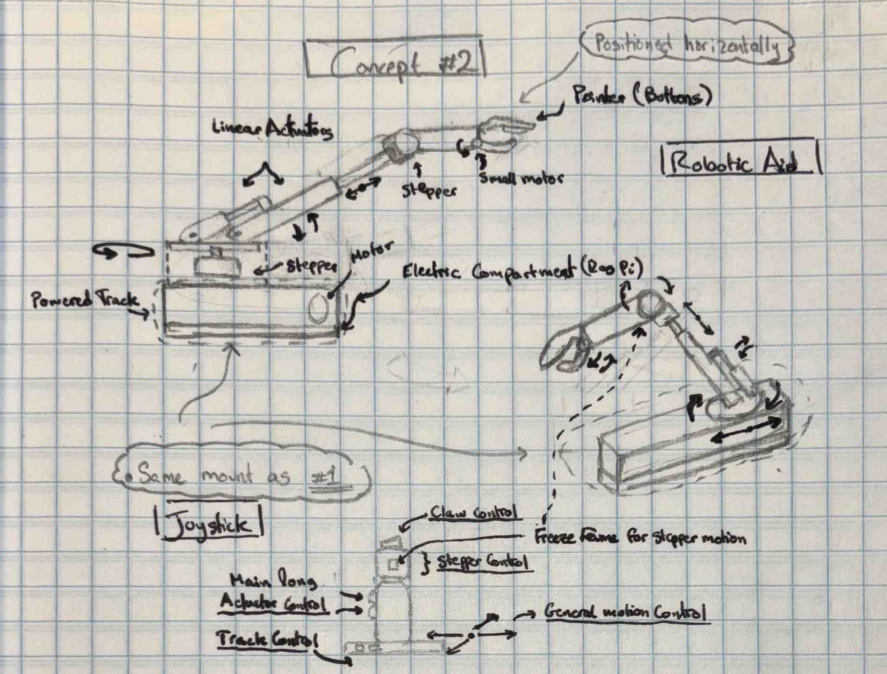 Concept #2
Positioned horizontally
Pointer (Buttons)
Linear Actuators
Robotic Aid
Stepper
Small motor
Stepper
Motor
Electric Compartment (Rasp Pi)
Powered Track
Same mount as #1
Joystick
Claw Control
Freeze Frame for stepper motion
Stepper Control
Main long
Actuator Control
General motion Control
Track Control